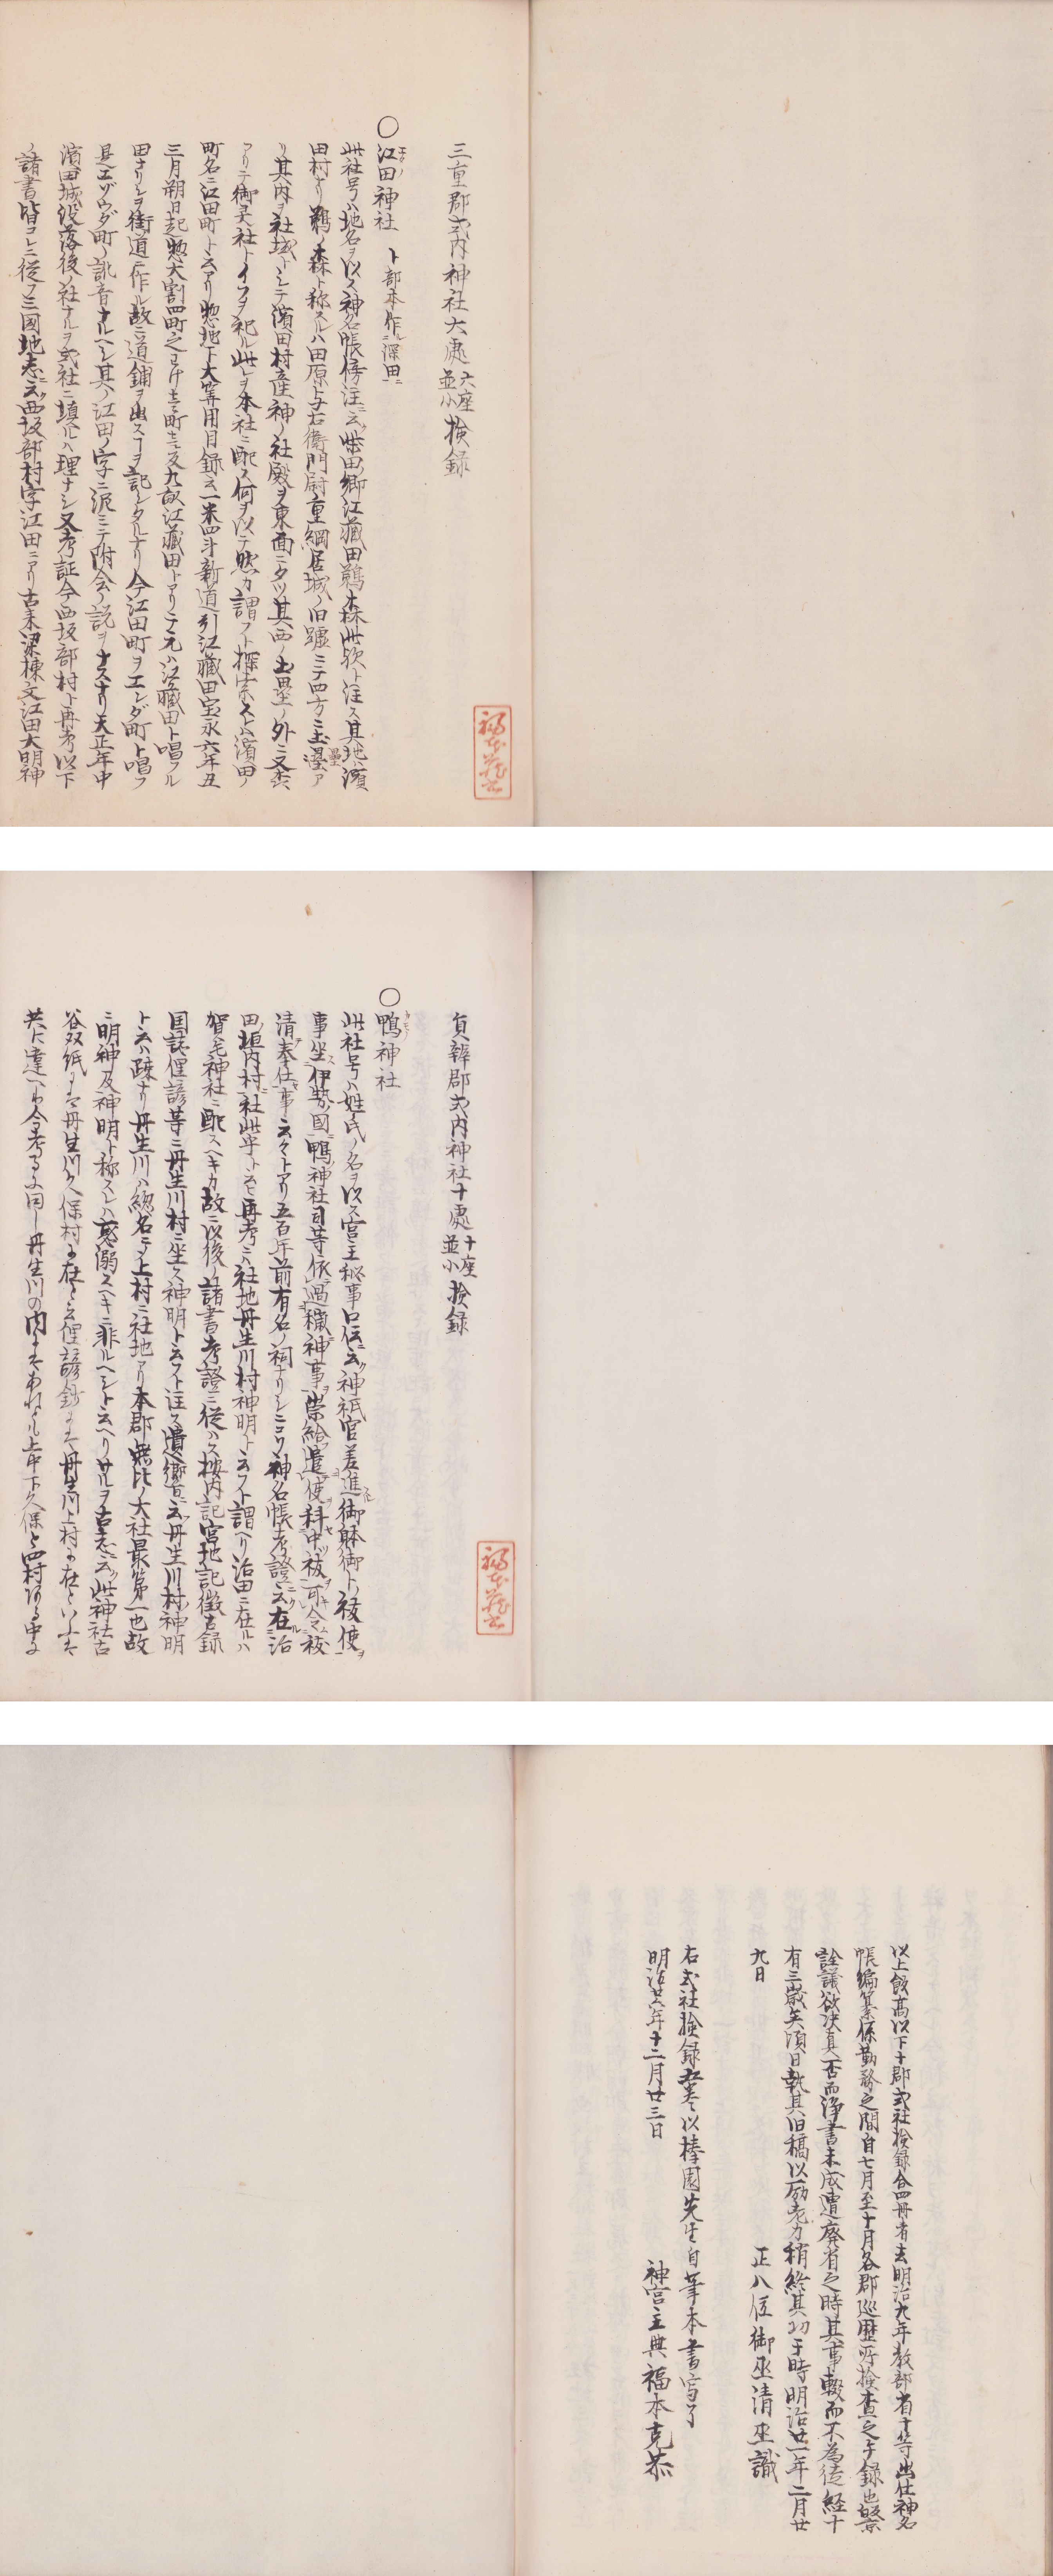 三重郡式内神社六處六座並小撿録
○江田神社 卜部本作深田
此社号ハ地名ヲ以ス神名帳傍注ニ云柴田郷江蔵田鵜森此歟ト注ス其地ハ濱
田村ナリ鵜ノ森ト称スルハ田原与右衛門尉重綱居城ノ旧墟ニテ四方ニ土壘ア
リ其内ヲ社域トシテ濱田村産神ノ社殿ヲ東面ニタツ其西ノ土壘ノ外ニ又
アリテ御灵社トイフヲ祀ル此レヲ本社ニ配ス何ヲ以テ然カ謂フト探索スレハ濱田ノ
町名ニ江田町ト云アリ惣地下大筭用目録云一米四斗新道引江蔵田宝永六年丑
三月朔日起惣大割四町之 九畝江蔵田トアリテ元ハ江蔵田ト唱フル
田ナリシヲ街道ニ作ル故ニ道鋪ヲ出スヿヲ記シタルナリ今江田町ヲエンダ町ト唱フ
是エゾウダ町ノ訛音ナルヘシ其ノ江田ノ字ニ泥ミテ附会ノ説ヲナスナリ天正年中
濱田城没落後ノ社ナルヲ式社ニ填ルハ理ナシ又考証今西坂部村ト再考以下
ノ諸書皆コレニ從フ三國地志ニ云西坂部村字江田ニアリ古来梁棟文江田大明神
員辨郡式内神社十處十座並小撿録
○鴨神社
此社号ハ姓氏ノ名ヲ以ス宮主秘事口伝云神祇官差進御躰御卜祓使
事坐伊勢國鴨神社司等依過穢神事祟給遣使科中祓可令祓
清奉仕事云々トアリ五百年前有名ノ祠ナリシニコソ神名帳考證云在治
田垣内村社此乎ト云ヒ再考ニハ社地丹生川村神明ト云フト謂ヘリ治田ニ在ルハ
賀毛神社ニ配スヘキカ故ニ以後ノ諸書考證ニ從ハス按内記宮地記徴古録
国誌俚諺等ニ丹生川村ニ坐ス神明ト云フト注ス遺響ニ云丹生川村神明
ト云ハ疎ナリ丹生川ハ総名ニテ上村ニ社地アリ本郡無比ノ大社最第一也故
ニ明神及神明ト称スレハ惑溺スヘキニ非ルヘシト云ヘリサルヲ古志ニ云此神社古
谷双紙には丹生川久保村に在と云俚諺鈔には丹生川上村に在といふは
共に違へり今考るに同し丹生川の内にはあれとも上中下久保と四村ある中に
以上飯高以下十郡式社撿録合四冊者去明治九年教部省十等出仕神名
帳編纂係勤務之間自七月至十月各郡巡歴所撿査之手録也
詮議欲决真否而浄書未成遭廃省之時其事輟而不為徒経十
有三歳矣頃日執其旧稿以励老力稍終其功于時明治廿一年二月廿
九日 正八位御巫清直識
右式社撿録五巻以棒園先生自筆本書写了
明治廿八年十二月廿三日 神宮主典福本克恭